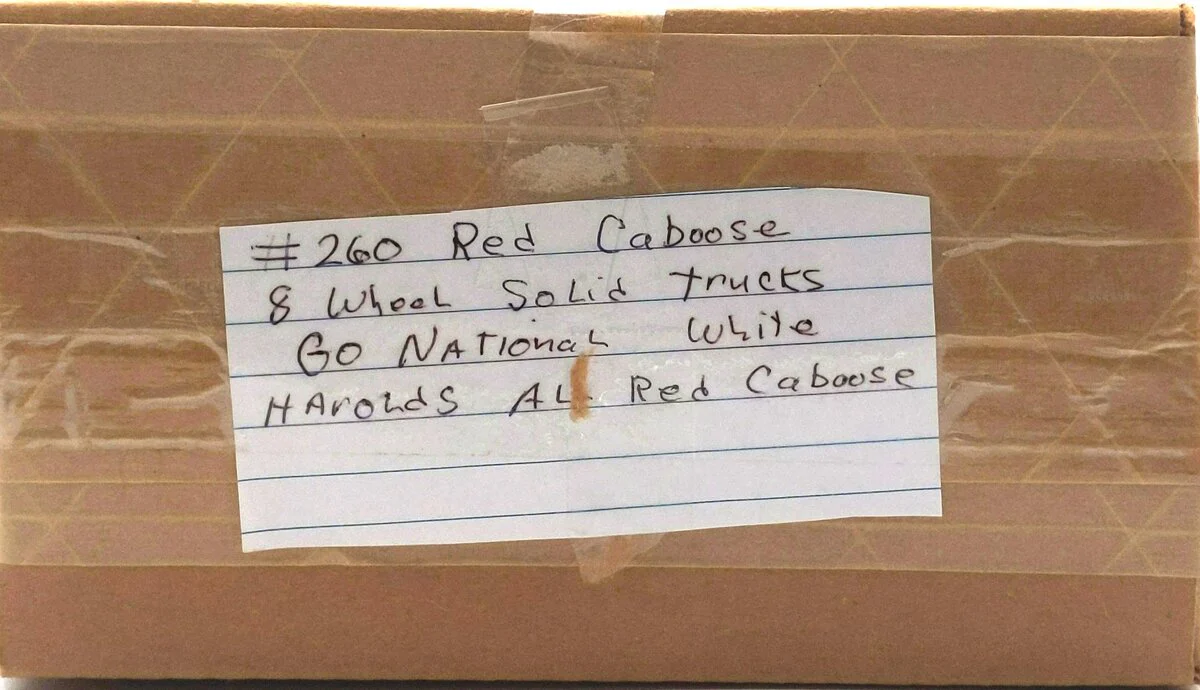 #260 Red Caboose
8 Wheel Solid trucks
GO NATIONAL White
HAROLDS ALL Red Caboose